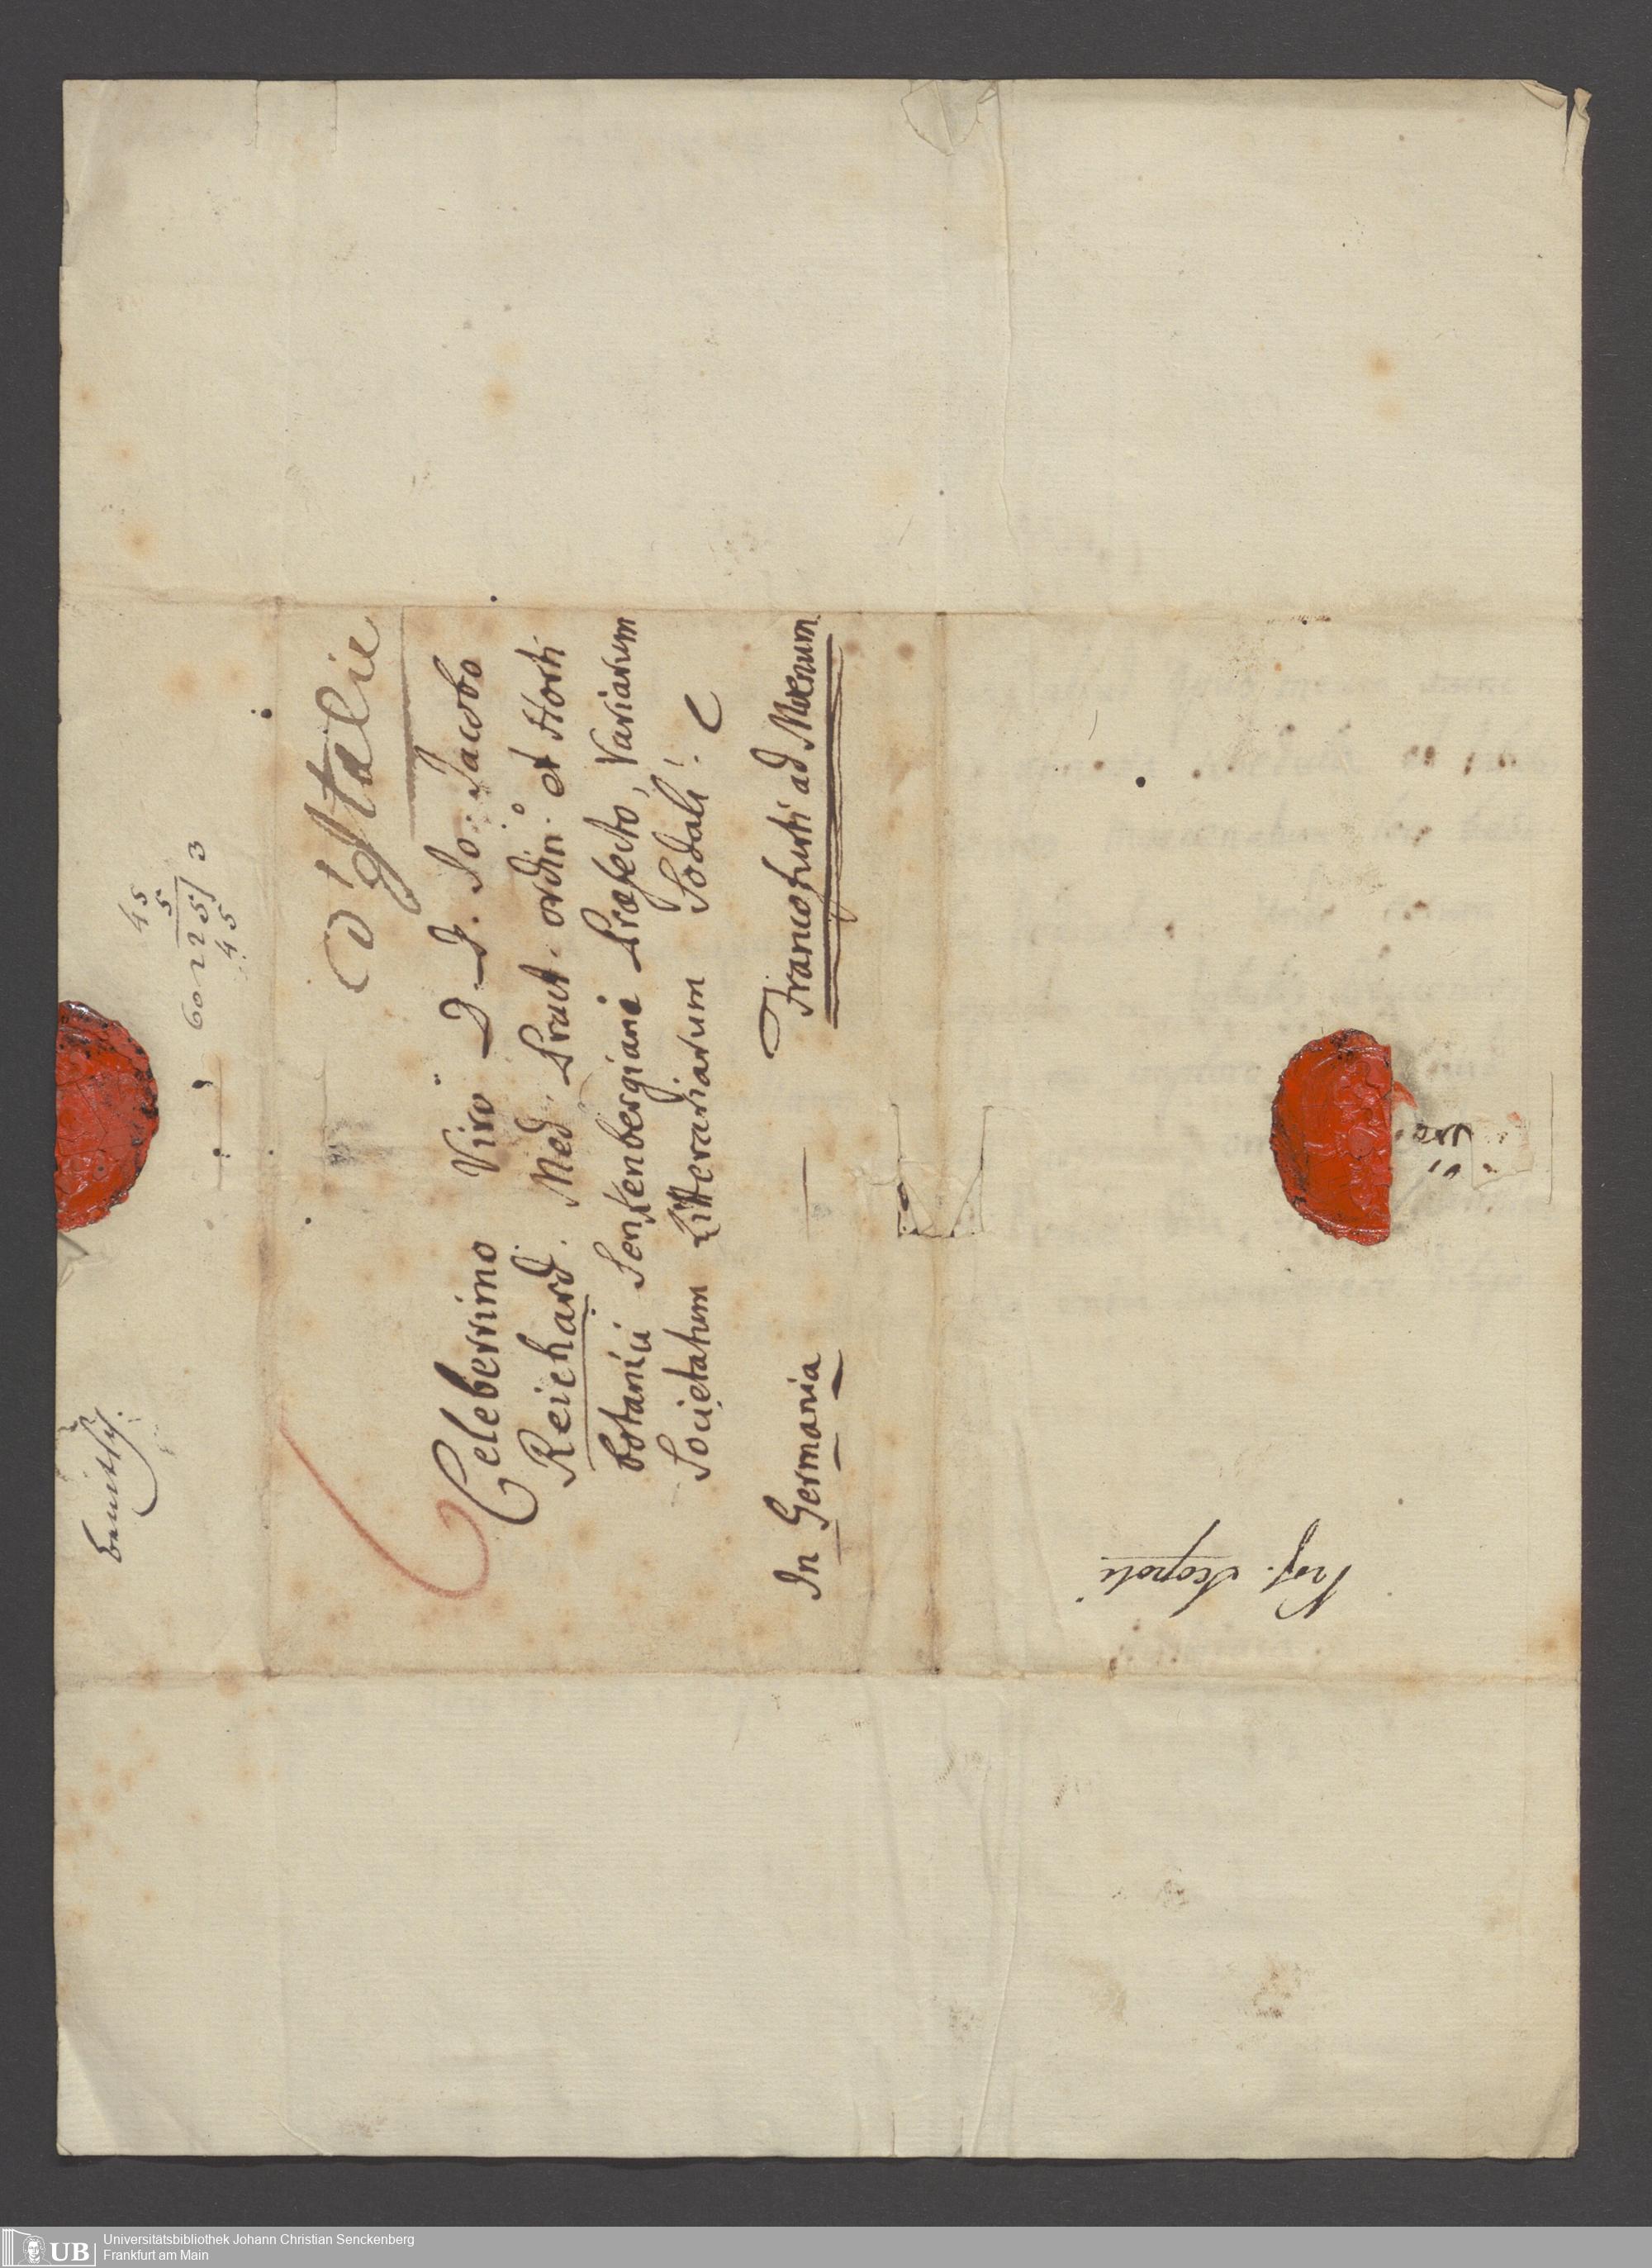 d'Italie
Celeberrimo Viro D. D. Jo: Jacobo
Reichard. Med. Pract. ordin: et Horti
botanici Senkenbergiani Præfecto, Variarum
Societatum Litterariarum Sodali.
Francofurti ad Moenum
In Germania
45
5
60 225 3
45
Prof. Scopoli
UB Universitätsbibliothek Johann Christian Senckenberg
Frankfurt am Main